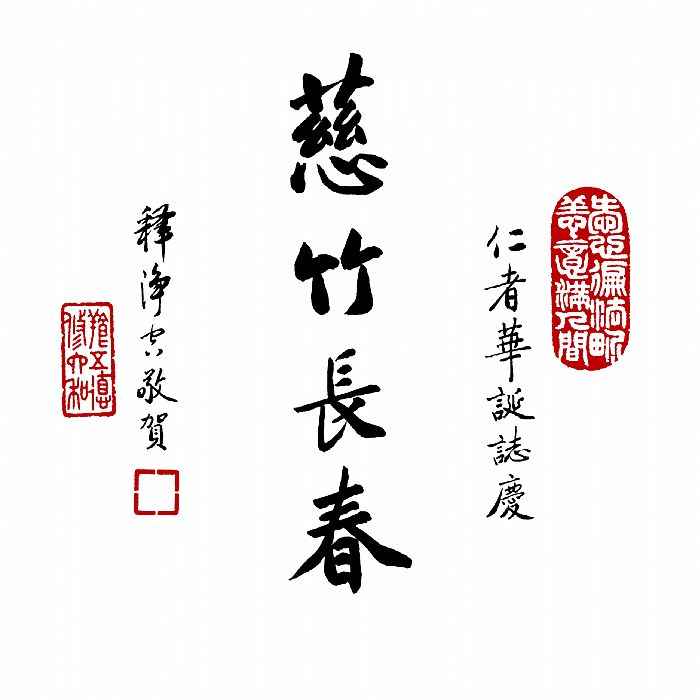 仁者華誕誌慶
慈竹長春
釋淨空敬賀